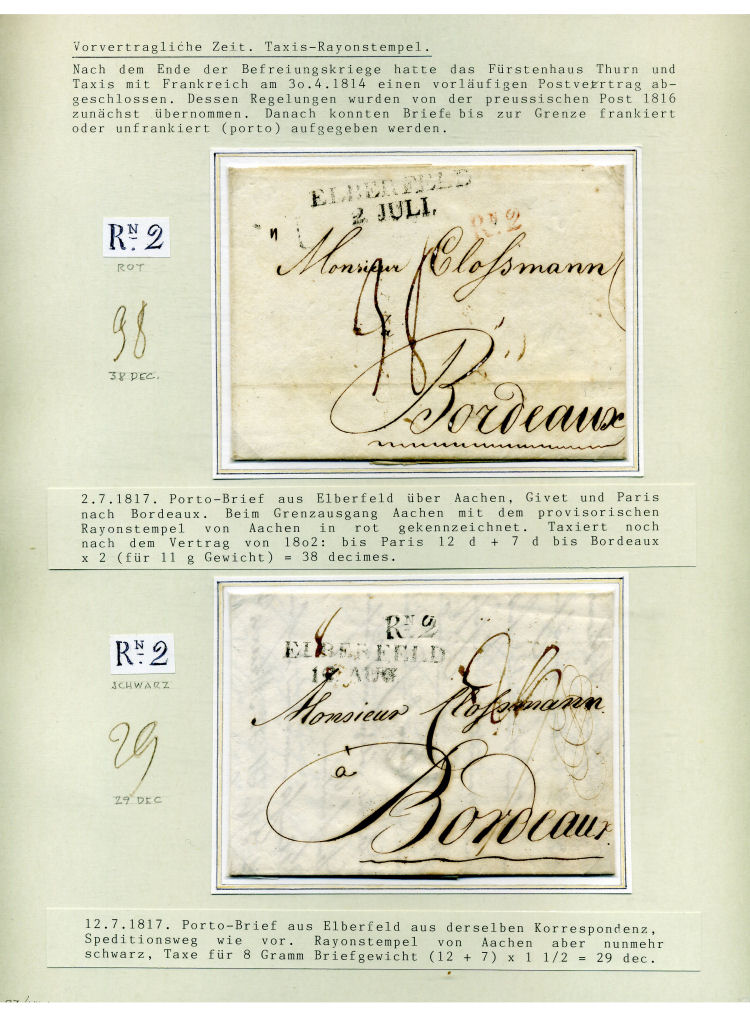 Vorvertragliche Zeit. Taxis-Rayonstempel.
Nach dem Ende der Befreiungskriege hatte das Fürstenhaus Thurn und
Taxis mit Frankreich am 3o.4.1814 einen vorläufigen Postvertrag ab-
geschlossen. Dessen Regelungen wurden von der preussischen Post 1816
zunächst übernommen. Danach konnten Briefe bis zur Grenze frankiert
oder unfrankiert (porto) aufgegeben werden.
ELBERFELD
2 JULI.
RN. 2
RN. 2
ROT
Monsieur Clossmann
38
38 DEC.
à
Bordeaux
2.7.1817. Porto-Brief aus Elberfeld über Aachen, Givet und Paris
nach Bordeaux. Beim Grenzausgang Aachen mit dem provisorischen
Rayonstempel von Aachen in rot gekennzeichnet. Taxiert noch
nach dem Vertrag von 18o2: bis Paris 12 d + 7 d bis Bordeaux
x 2 (für 11 g Gewicht) = 38 decimes.
RN. 2
ELBERFELD
AUG
RN. 2
SCHWARZ
Monsieur Clossmann
29
29 DEC
à
Bordeaux
12.7.1817. Porto-Brief aus Elberfeld aus derselben Korrespondenz,
Speditionsweg wie vor. Rayonstempel von Aachen aber nunmehr
schwarz, Taxe für 8 Gramm Briefgewicht (12 + 7) x 1 1/2 = 29 dec.